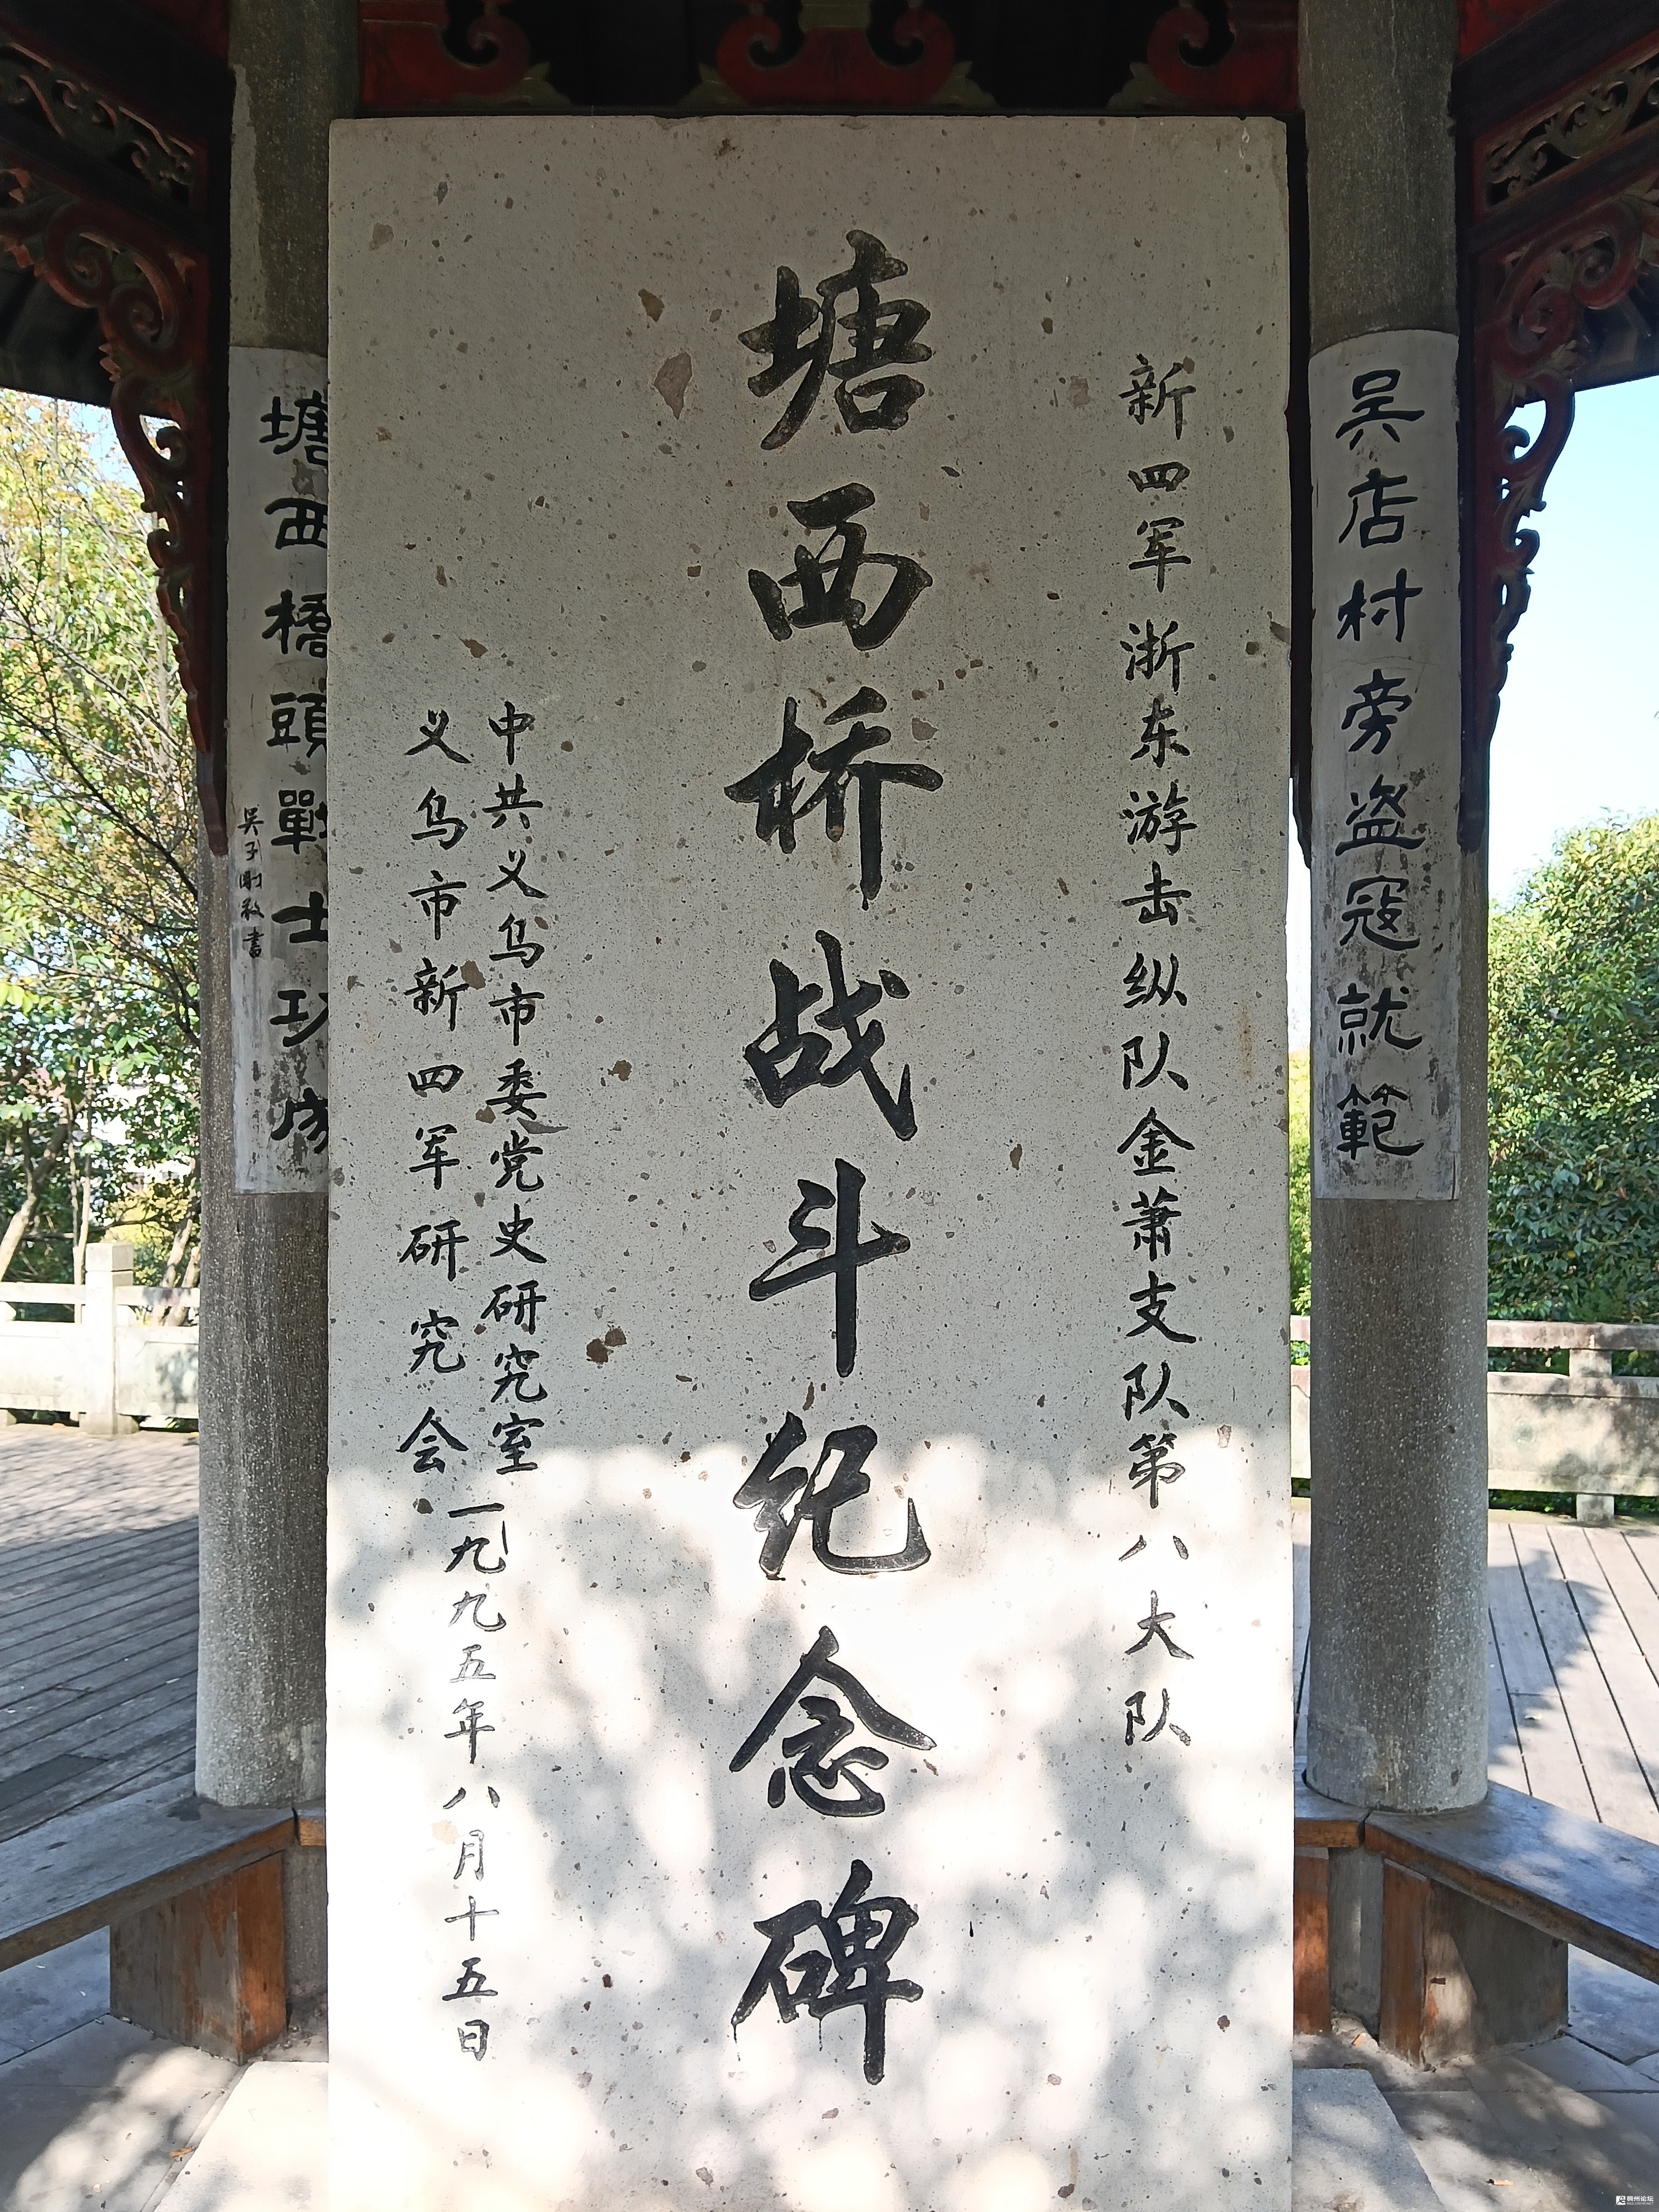 吴店村旁盗寇就範
新四军浙东游击纵队金萧支队第八大队
塘西桥战斗纪念碑
中共义乌市委党史研究室
义乌市新四军研究会
一九九五年八月十五日
塘西橋頭戰士功成
吴子刚敬書
稠州论坛